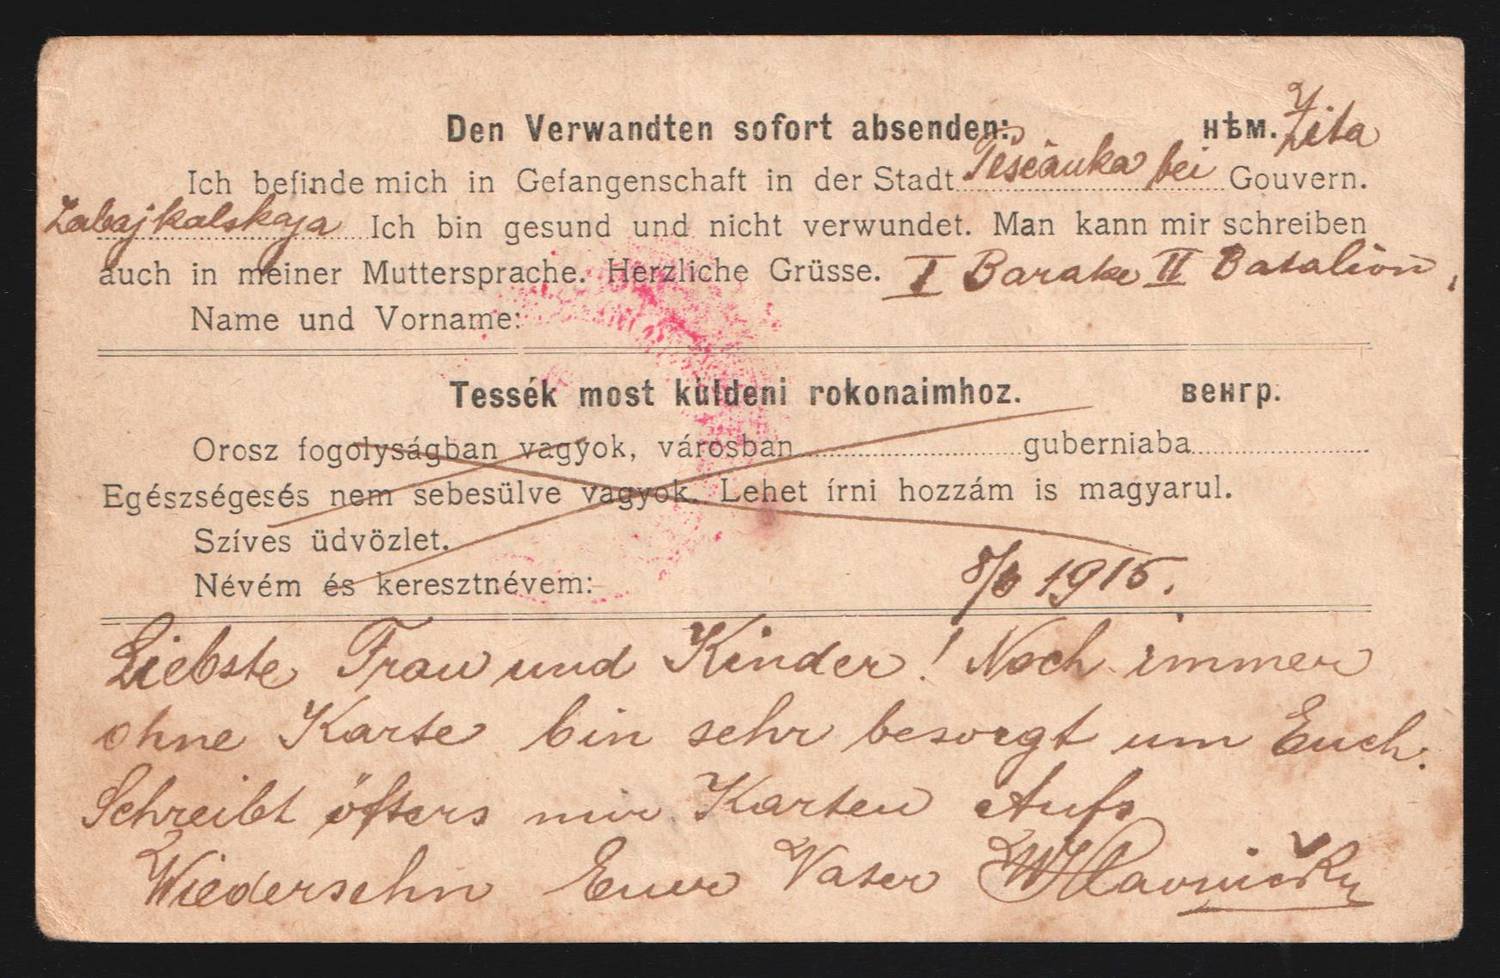 Den Verwandten sofort absenden: нѣм. Zita
Ich befinde mich in Gefangenschaft in der Stadt Pesčanka bei Gouvern.
Zabajkalskaja Ich bin gesund und nicht verwundet. Man kann mir schreiben
auch in meiner Muttersprache. Herzliche Grüsse. I Barake II Batalion,
Name und Vorname:
Tessék most küldeni rokonaimhoz. венгр.
Orosz fogolyságban vagyok, városban guberniaba
Egészségesés nem sebesülve vagyok. Lehet írni hozzám is magyarul.
Szíves üdvözlet.
Névém és keresztnévem:
1915.
Liebste Frau und Kinder! Noch immer
ohne Karte bin sehr besorgt um Euch.
Schreibt öfters mir Karten Aufs
Wiedersehn Euer Vater WHlavničky